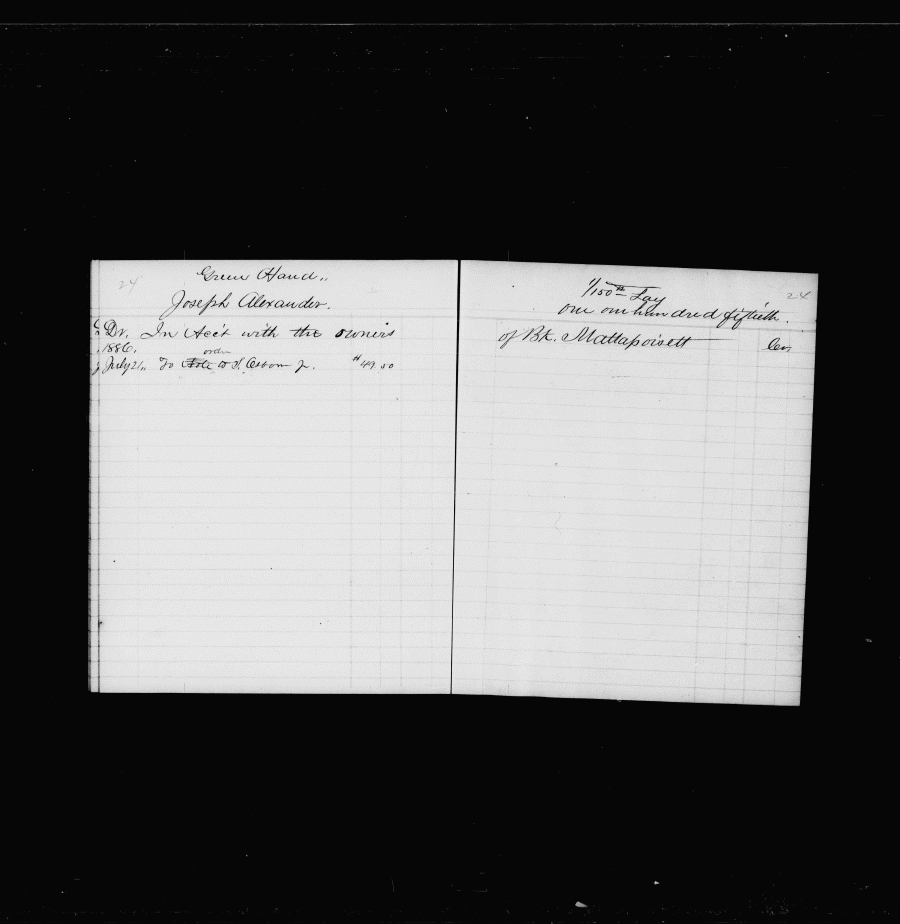 24
Green Hand,,
Joseph Alexander.
Dr. In Acct with the owners
1886.
order
July 21,, To Note to S. Osborn Jr. $49.50
24
1/150th Lay
one one hundred fiftieth.
of Bk. Mattapoisett Cr.